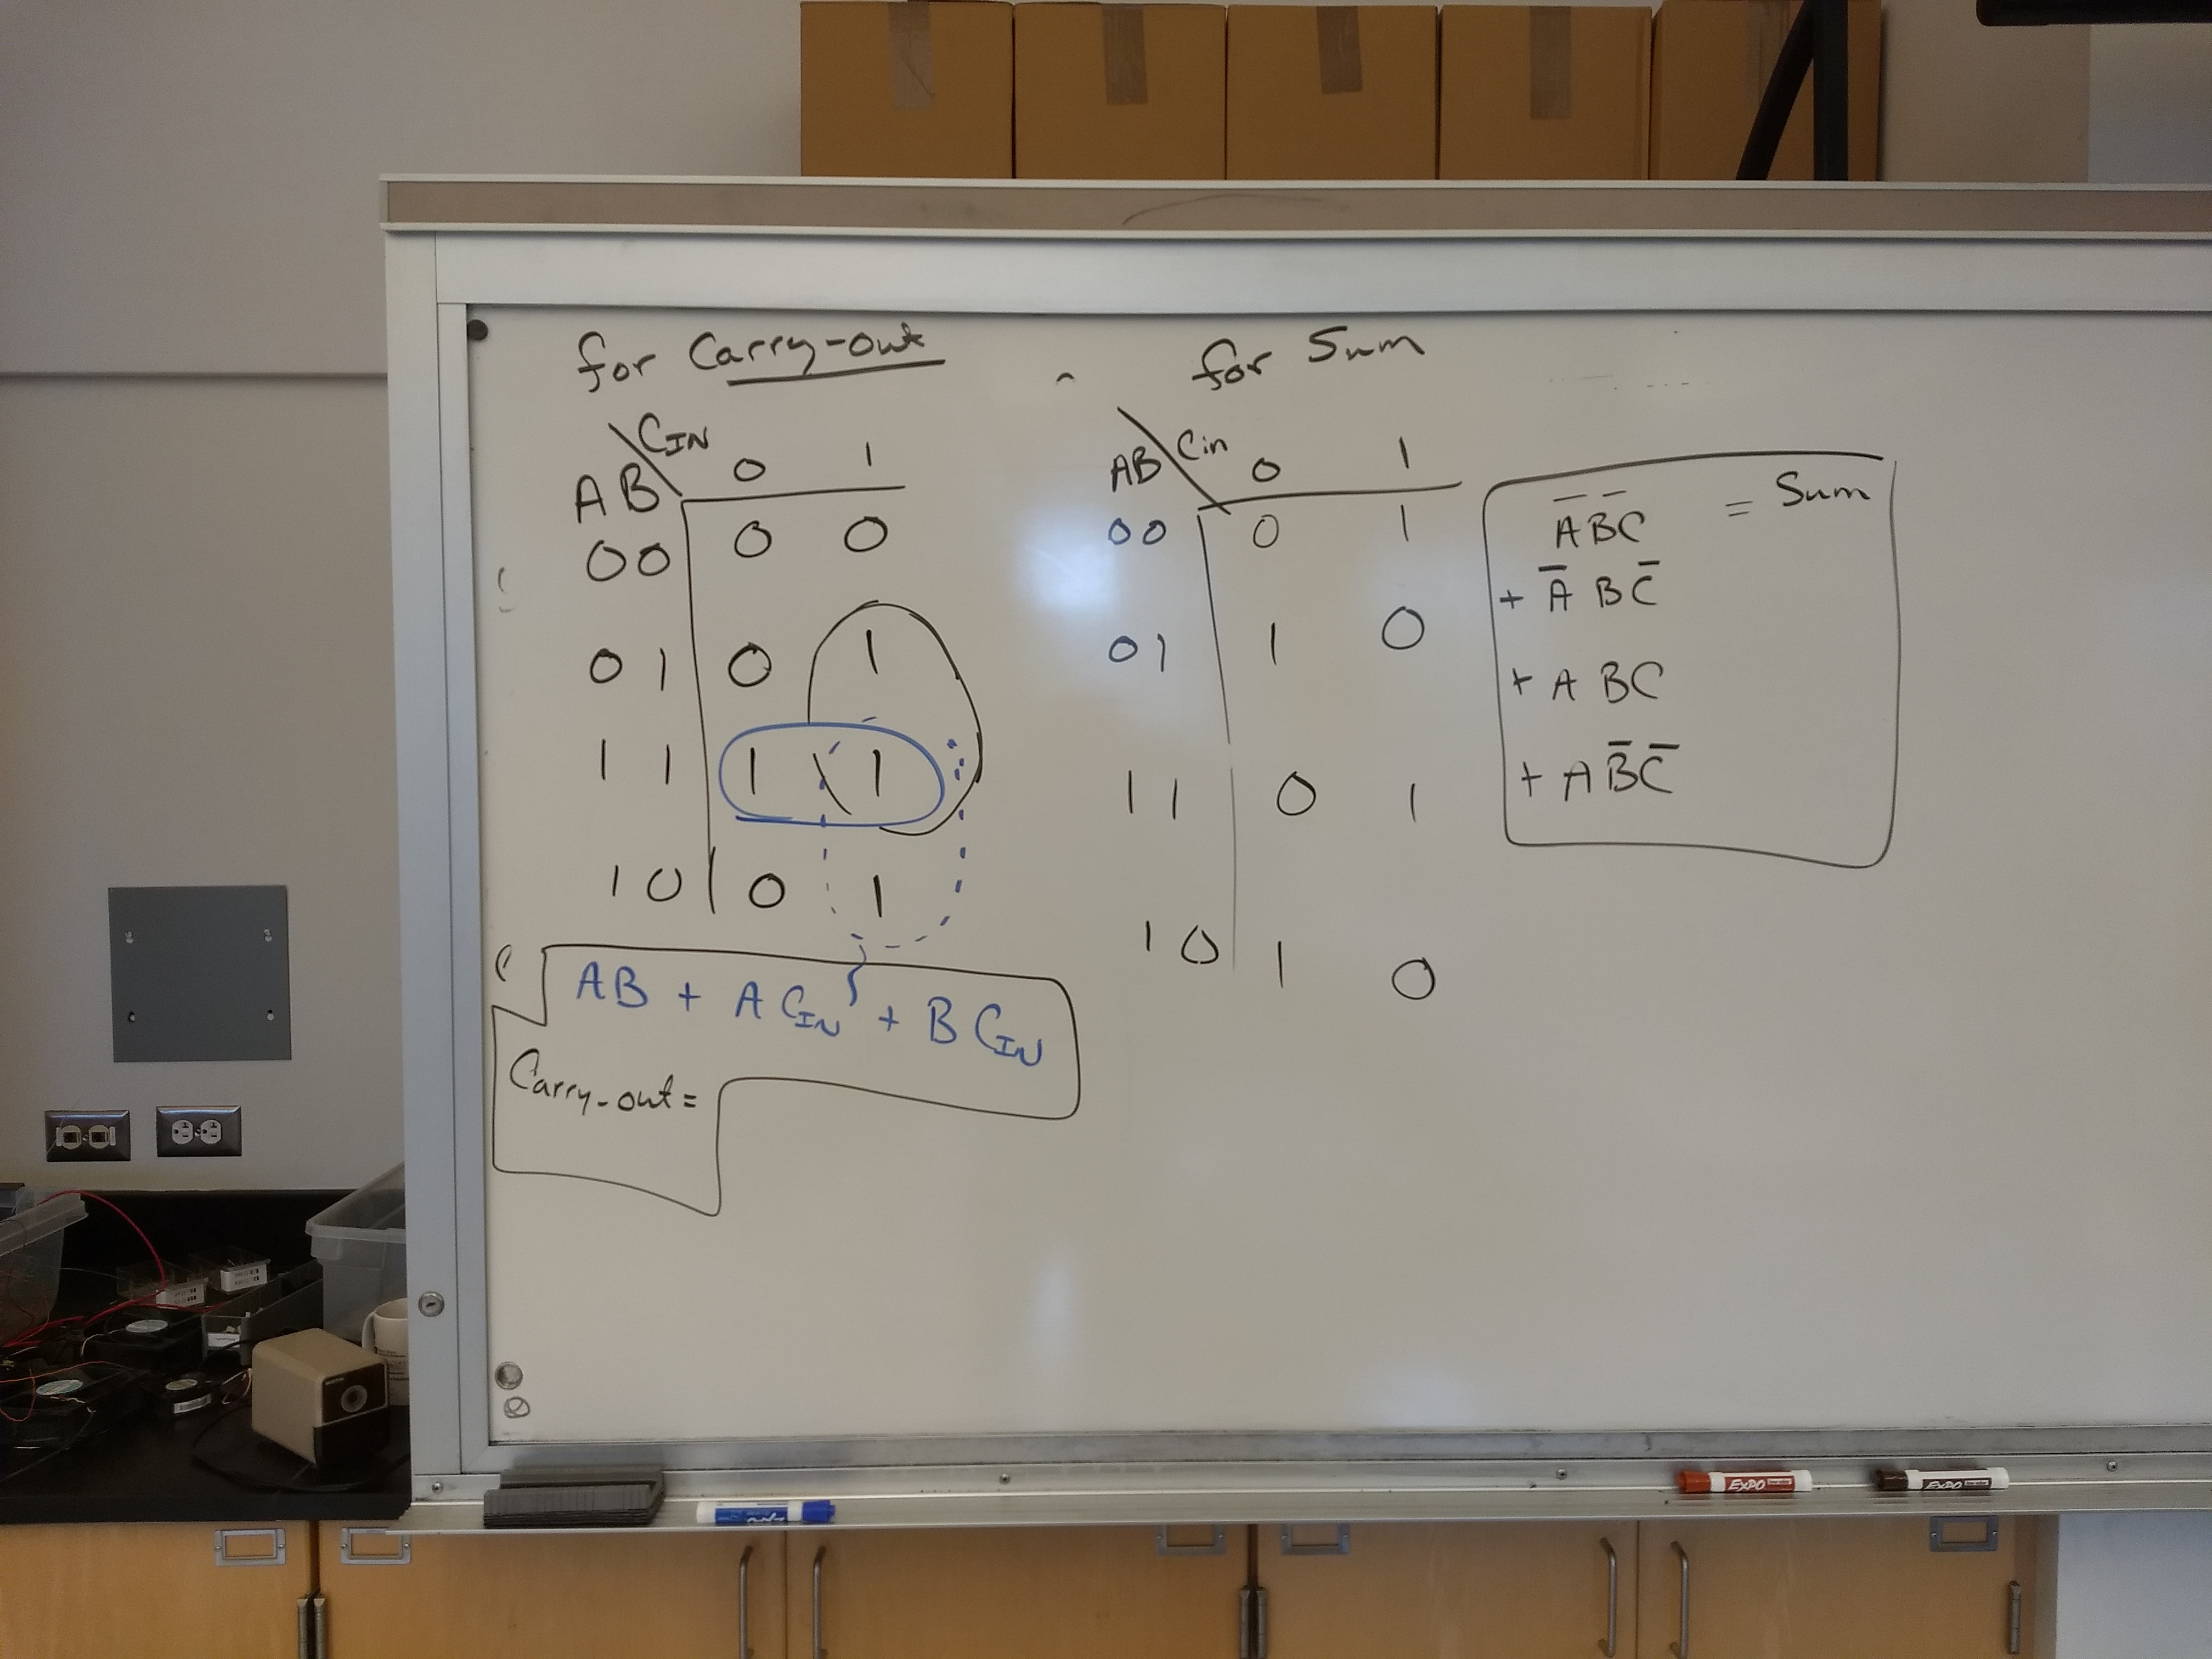 for Carry-out
AB \ CIN 0 1
00 0 0
01 0 1
11 1 1
10 0 1
AB + A CIN + B CIN
Carry-out =
for Sum
AB \ Cin 0 1
00 0 1
01 1 0
11 0 1
10 1 0
A̅ B̅ C = Sum
+ A̅ B C̅
+ A B C
+ A B̅ C̅
EXPO
EXPO